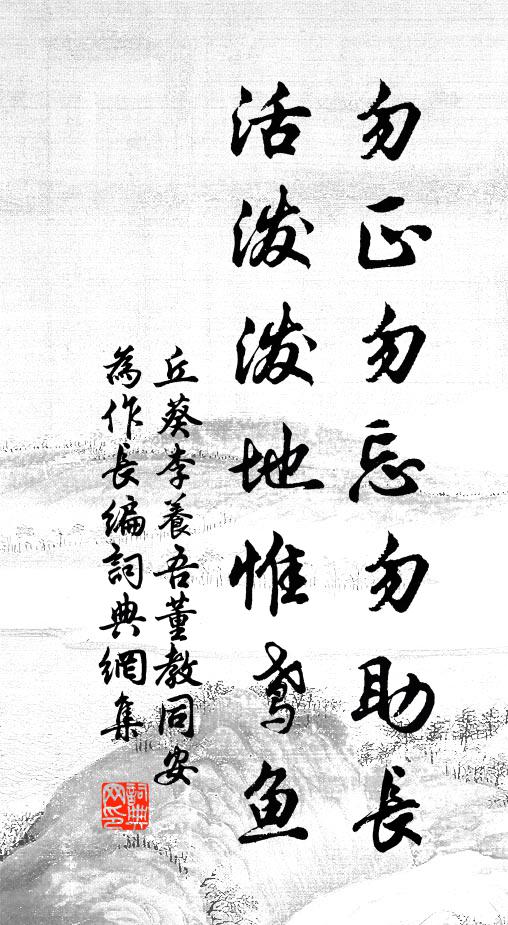 勿正勿忘勿助長
活泼泼地惟鸢魚
丘葵李養吾董教同安
為作長編詞典網集
詞典
网印